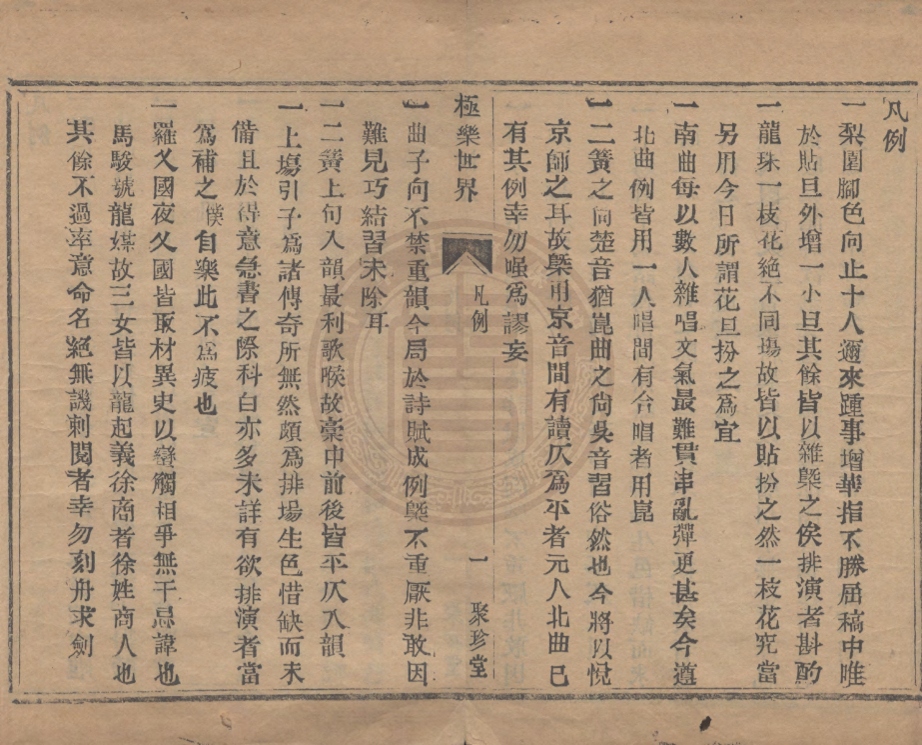 凡例
一梨園腳色向止十八邇來踵事增華指不勝屈稿中唯
於貼旦外增一小旦其餘皆以雜槩之俟排演者斟酌
一龍珠一枝花絕不同塲故皆以貼扮之然一枝花究當
另用今日所謂花旦扮之爲宜
一南曲每以數人雜唱文氣最難貫串亂彈更甚矣今遵
北曲例皆用一人唱間有合唱者用崑
一二簧之尚楚音猶崑曲之尙吳音習俗然也今將以悅
京師之耳故槩用京音間有讀仄爲平者元人北曲已
有其例幸勿嗤爲謬妄
極樂世界
凡例
一
聚珍堂
一曲子向不禁重韻今局於詩賦成例槩不重厭非敢因
難見巧結習未除耳
一二簧上句入韻最利歌喉故稾中前後皆平仄入韻
一上塲引子爲諸傳奇所無然頗爲排場生色惜缺而未
備且於得意急書之際科白亦多未詳有欲排演者當
爲補之僕自樂此不爲疲也
一羅父國夜父國皆取材異史以蠻觸相爭無干忌諱也
馬駿號龍媒故三女皆以龍起義徐商者徐姓商人也
其餘不過率意命名絕無譏刺閱者幸勿刻舟求劍